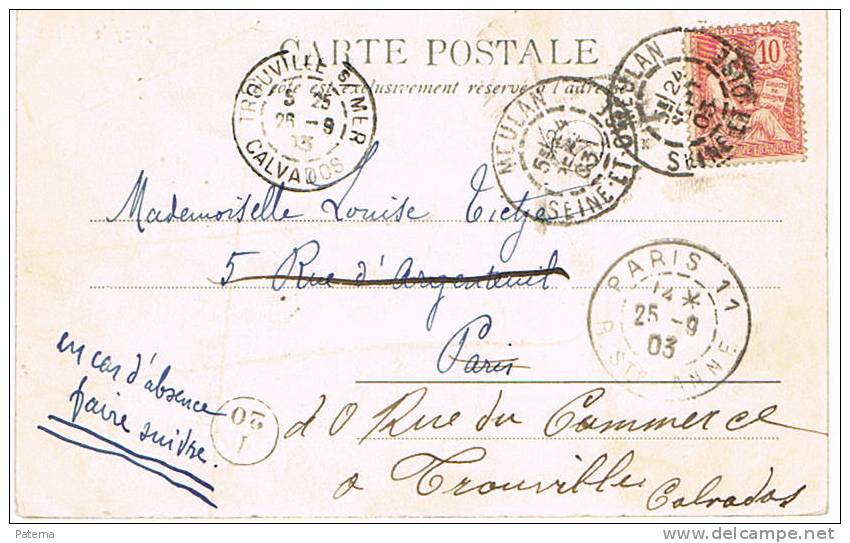 CARTE POSTALE
Côté est exclusivement réservé à l'adresse
TROUVILLE S/MER
5 25
26 - 9
03
CALVADOS
MEULAN
SEINE-ET-O
MEULAN
SEINE-ET-OISE
POSTES
10
Mademoiselle Louise Tietje
5 Rue d'Argenteuil
Paris
PARIS 11
14 *
25 - 9
03
R. STE ANNE
en cas d'absence
faire suivre.
20
1
Rue du Commerce
a Trouville
Calvados
Paterna
delcampe.net